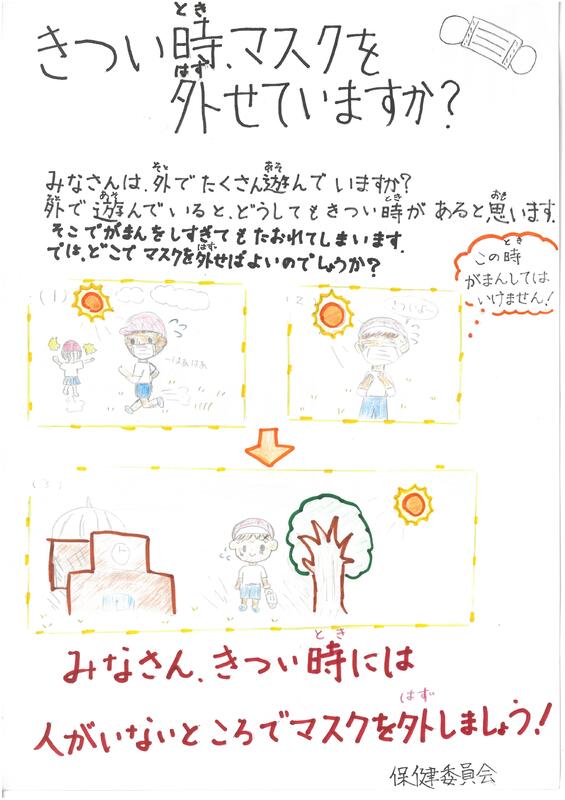 きつい時、マスクを
外せていますか?
みなさんは、外でたくさん遊んでいますか?
外で遊んでいると、どうしてもきつい時があると思います。
そこでがまんをしすぎてもたおれてしまいます。
では、どこでマスクを外せばよいのでしょうか?
この時
がまんしては
いけません!
(1)
〜はあはあ
2
きついよー
(3)
みなさん、きつい時には
人がいないところでマスクを外しましょう!
保健委員会